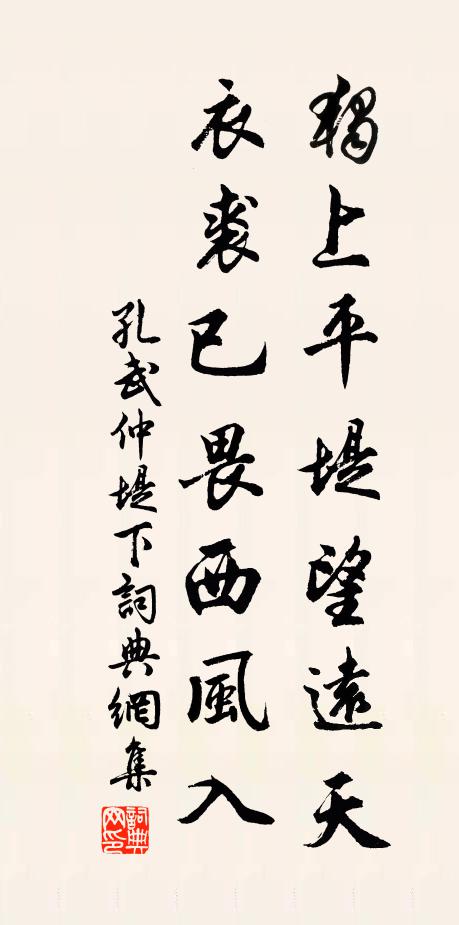 獨上平堤望遠天
衣裘已畏西風入
孔武仲堤下詞典網集
詞典
网印